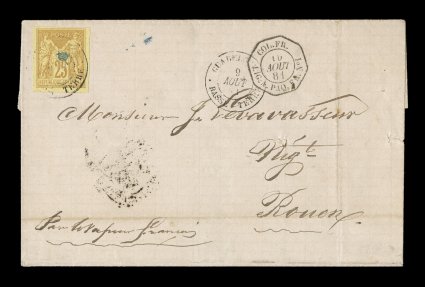 25
TERRE
GUADEL
9
AOUT
BASSE-TERRE
COL. FR.
10
AOUT
81
LIG. A. PAQ. FR.
Monsieur J. Levavasseur
Négt
Rouen
Par Vapeur français